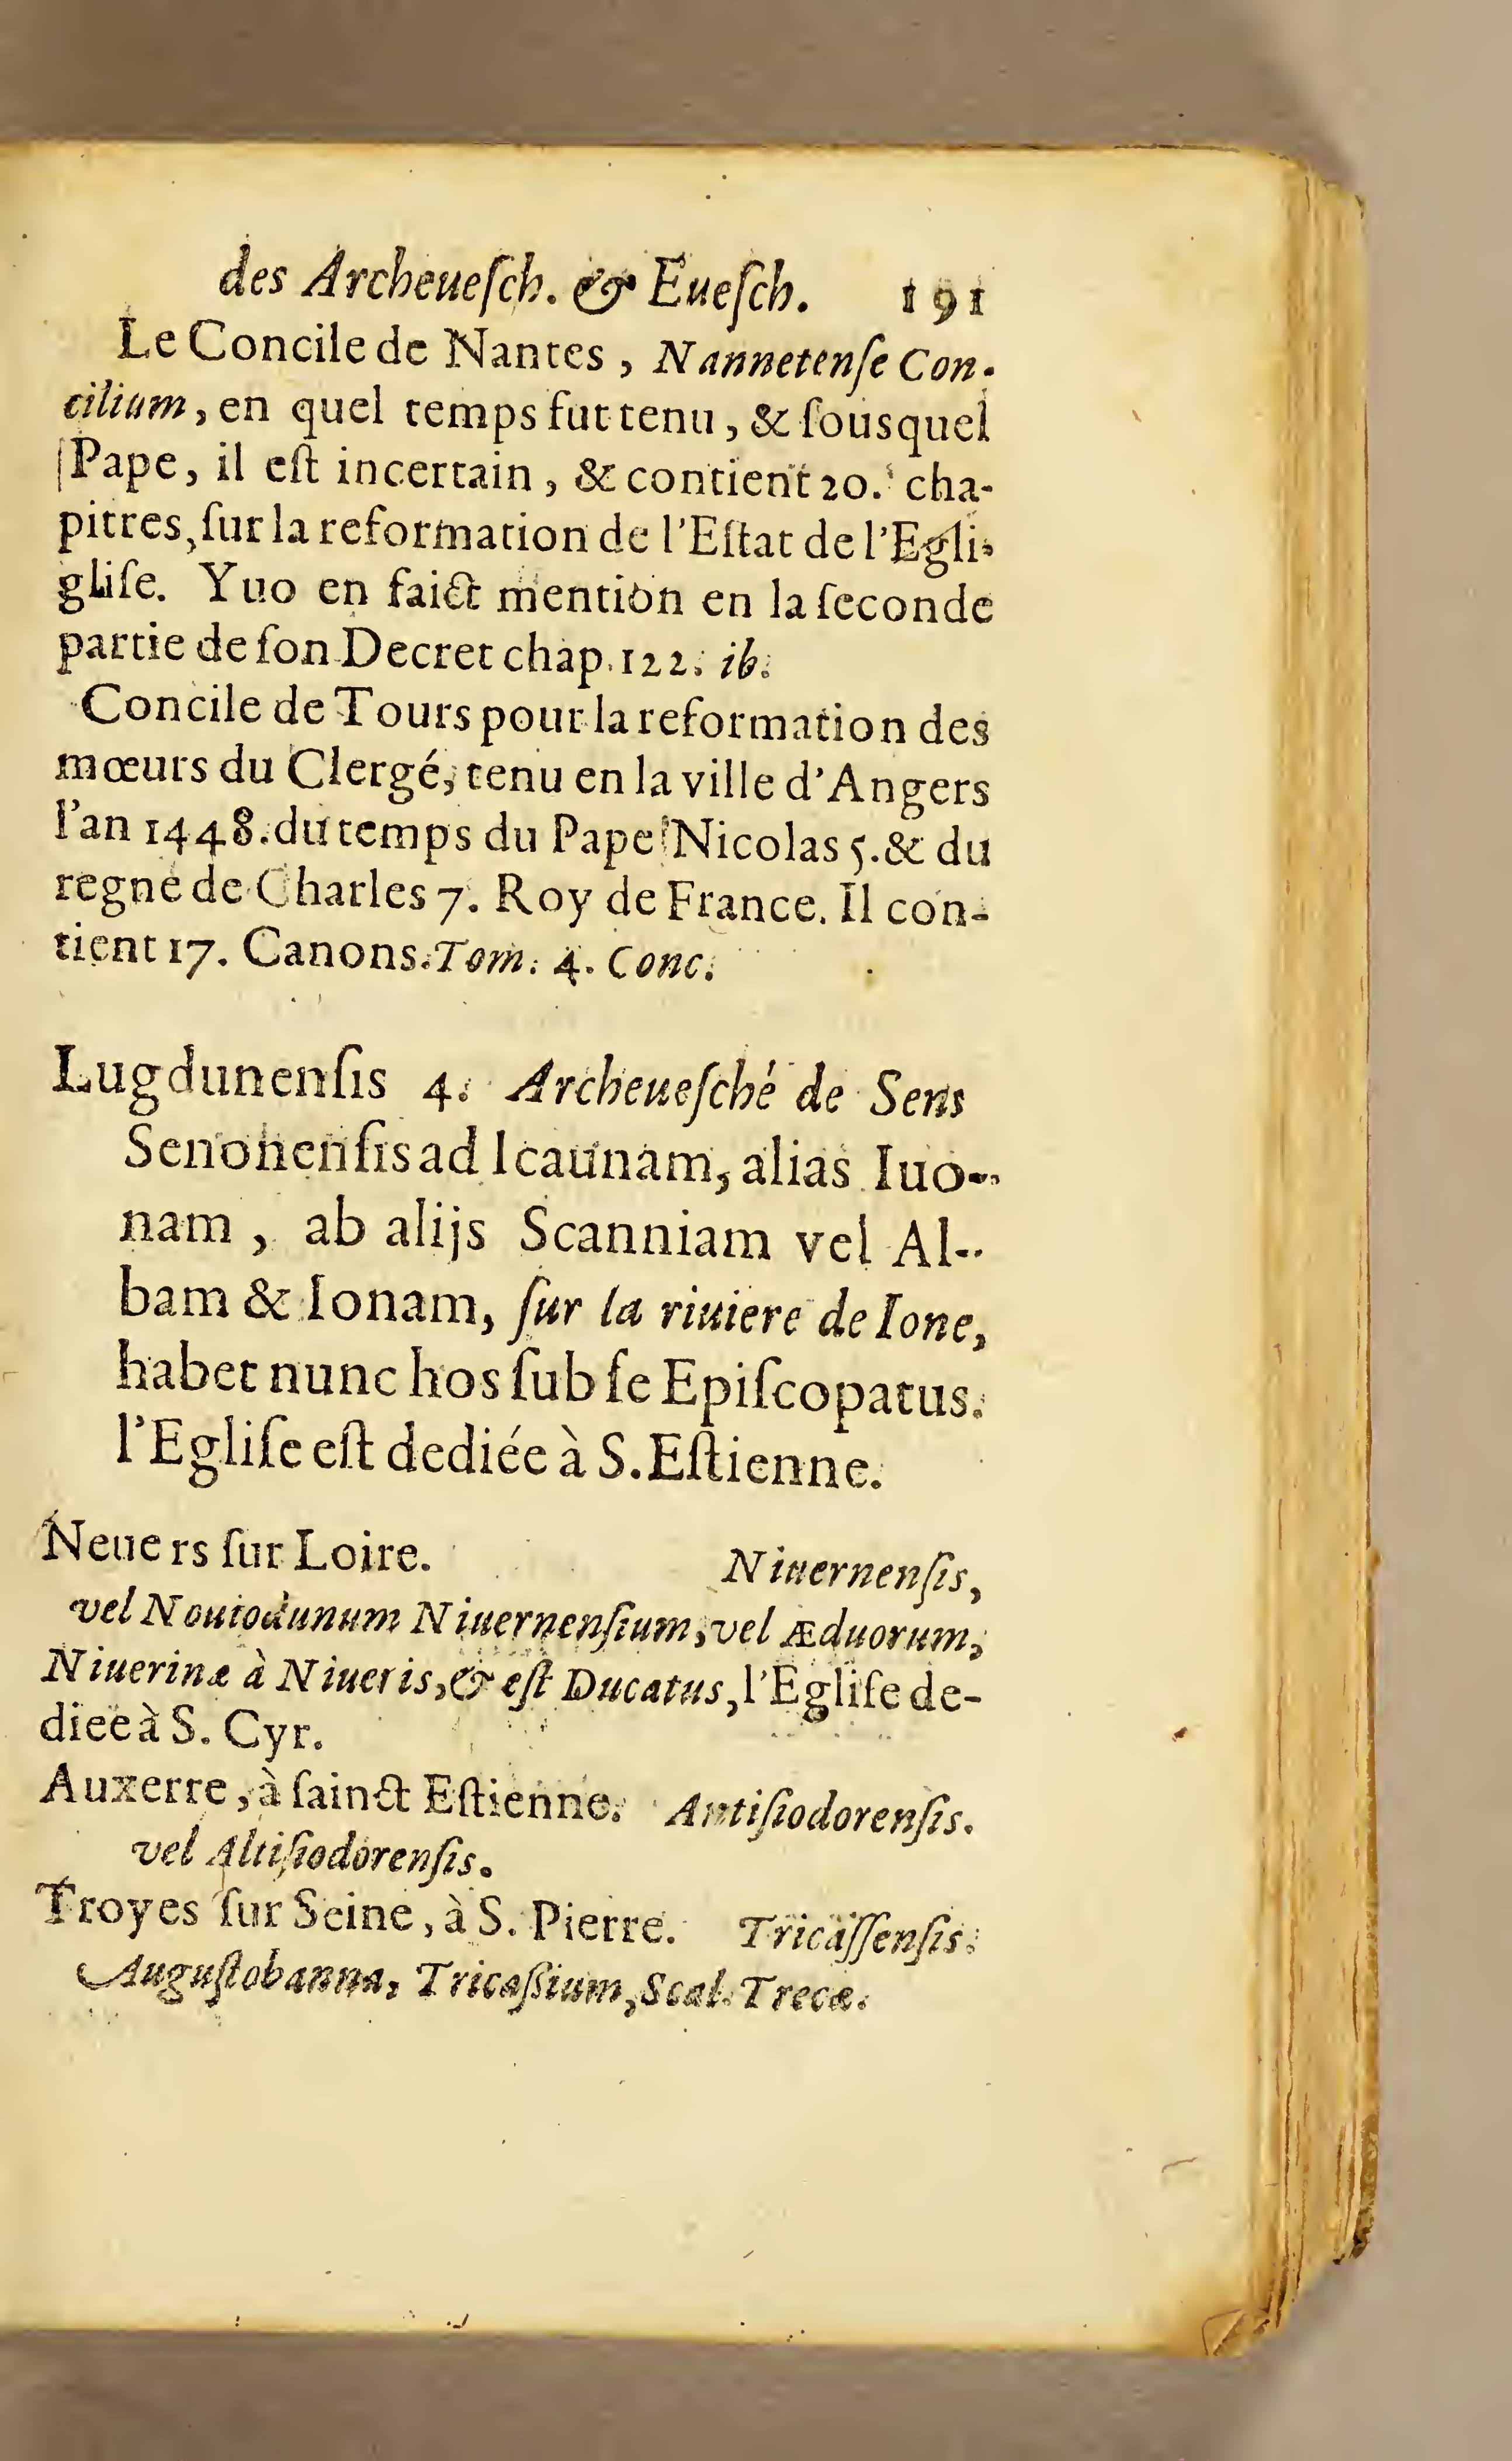 des Archeueſch. & Eueſch. 191
Le Concile de Nantes, Nannetenſe Con-
cilium, en quel temps fut tenu, & ſous quel
Pape, il eſt incertain, & contient 20. cha-
pitres, ſur la reformation de l'Eſtat de l'Egli-
gliſe. Yuo en faict mention en la ſeconde
partie de ſon Decret chap. 122. ib.
Concile de Tours pour la reformation des
mœurs du Clergé, tenu en la ville d'Angers
l'an 1448. du temps du Pape Nicolas 5. & du
regne de Charles 7. Roy de France. Il con-
tient 17. Canons. Tom. 4. Conc.
Lugdunenſis 4. Archeueſché de Sens
Senonenſis ad Icaunam, alias Iuo-
nam, ab alijs Scanniam vel Al-
bam & Ionam, ſur la riuiere de Ione,
habet nunc hos ſub ſe Epiſcopatus.
l'Egliſe eſt dediée à S. Eſtienne.
Neuers ſur Loire. Niuernenſis,
vel Nouiodunum Niuernenſium, vel Æduorum,
Niuerinæ à Niueris, & eſt Ducatus, l'Egliſe de-
dieë à S. Cyr.
Auxerre, à ſainct Eſtienne. Antiſiodorenſis.
vel Altiſiodorenſis.
Troyes ſur Seine, à S. Pierre. Tricaſſenſis.
Auguſtobanna, Tricaßium, Scal. Trecæ.